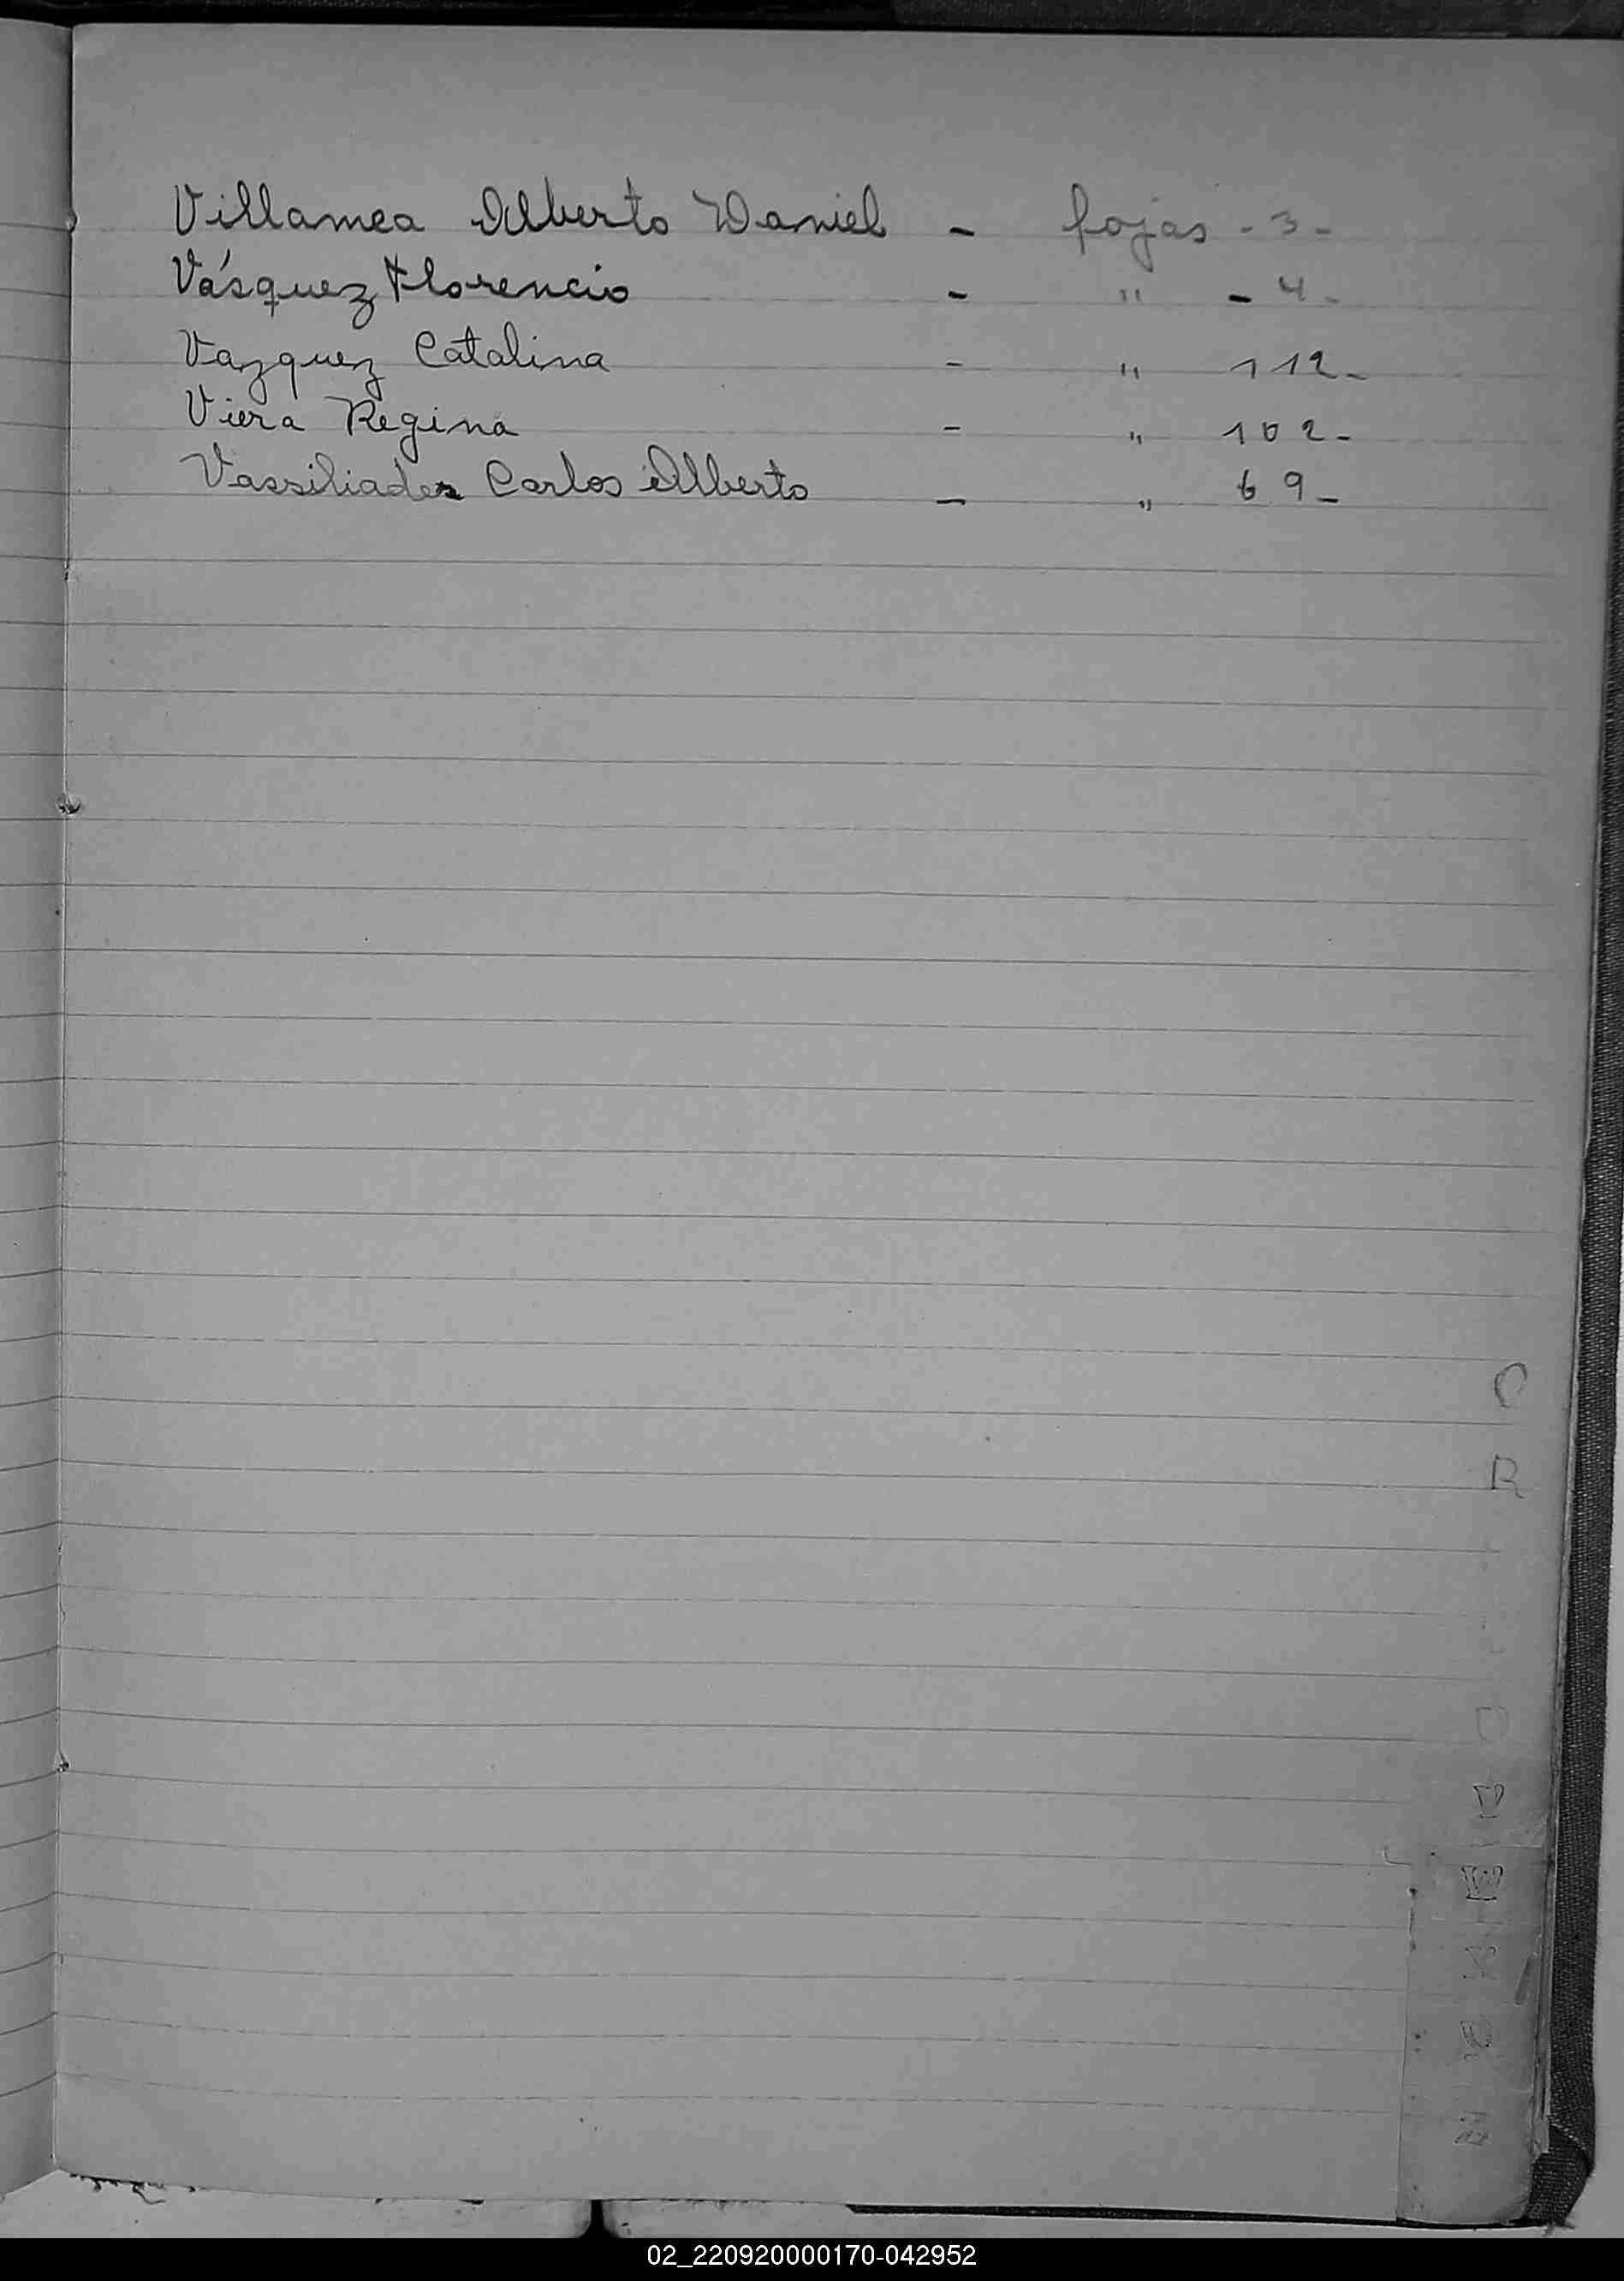 Villamea Alberto Daniel - fojas - 3 -
Vásquez Florencio - " - 4 -
Vazquez Catalina - " 112 -
Viera Regina - " 102 -
Vassiliades Carlos Alberto - " 69 -
C
R
02_220920000170-042952